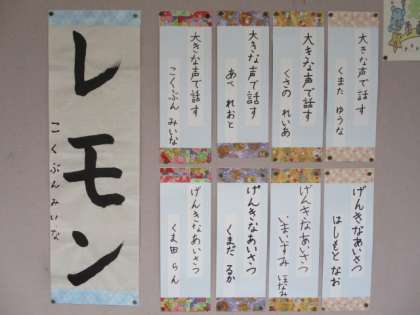 レモン
こくぶん みいな
大きな声で話す
くまた ゆうな
大きな声で話す
くさの れいあ
大きな声で話す
あべ れおと
大きな声で話す
こくぶん みいな
げんきなあいさつ
はしもと なお
げんきなあいさつ
いまいずみ ほなみ
げんきなあいさつ
くまだ るか
げんきなあいさつ
くま田 らん